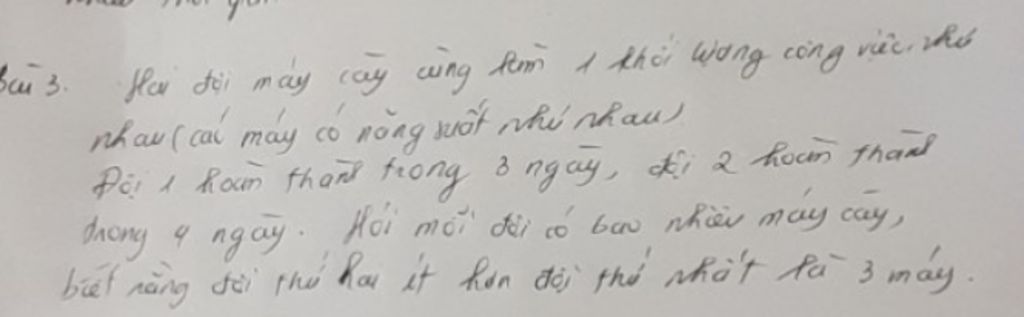 Bài 3. Hai đội máy cày cùng làm 1 khối lượng công việc như
nhau (các máy có năng suất như nhau)
Đội 1 hoàn thành trong 3 ngày, đội 2 hoàn thành
trong 4 ngày. Hỏi mỗi đội có bao nhiêu máy cày,
biết rằng đội thứ hai ít hơn đội thứ nhất là 3 máy.